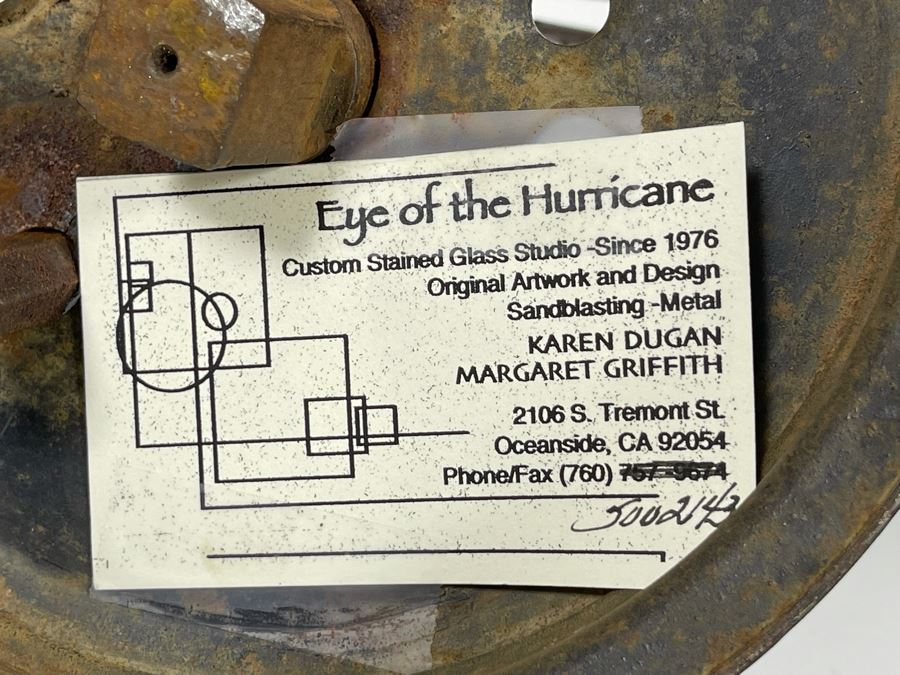 Eye of the Hurricane
Custom Stained Glass Studio -Since 1976
Original Artwork and Design
Sandblasting -Metal
KAREN DUGAN
MARGARET GRIFFITH
2106 S. Tremont St.
Oceanside, CA 92054
Phone/Fax (760) 757-9674
5002143